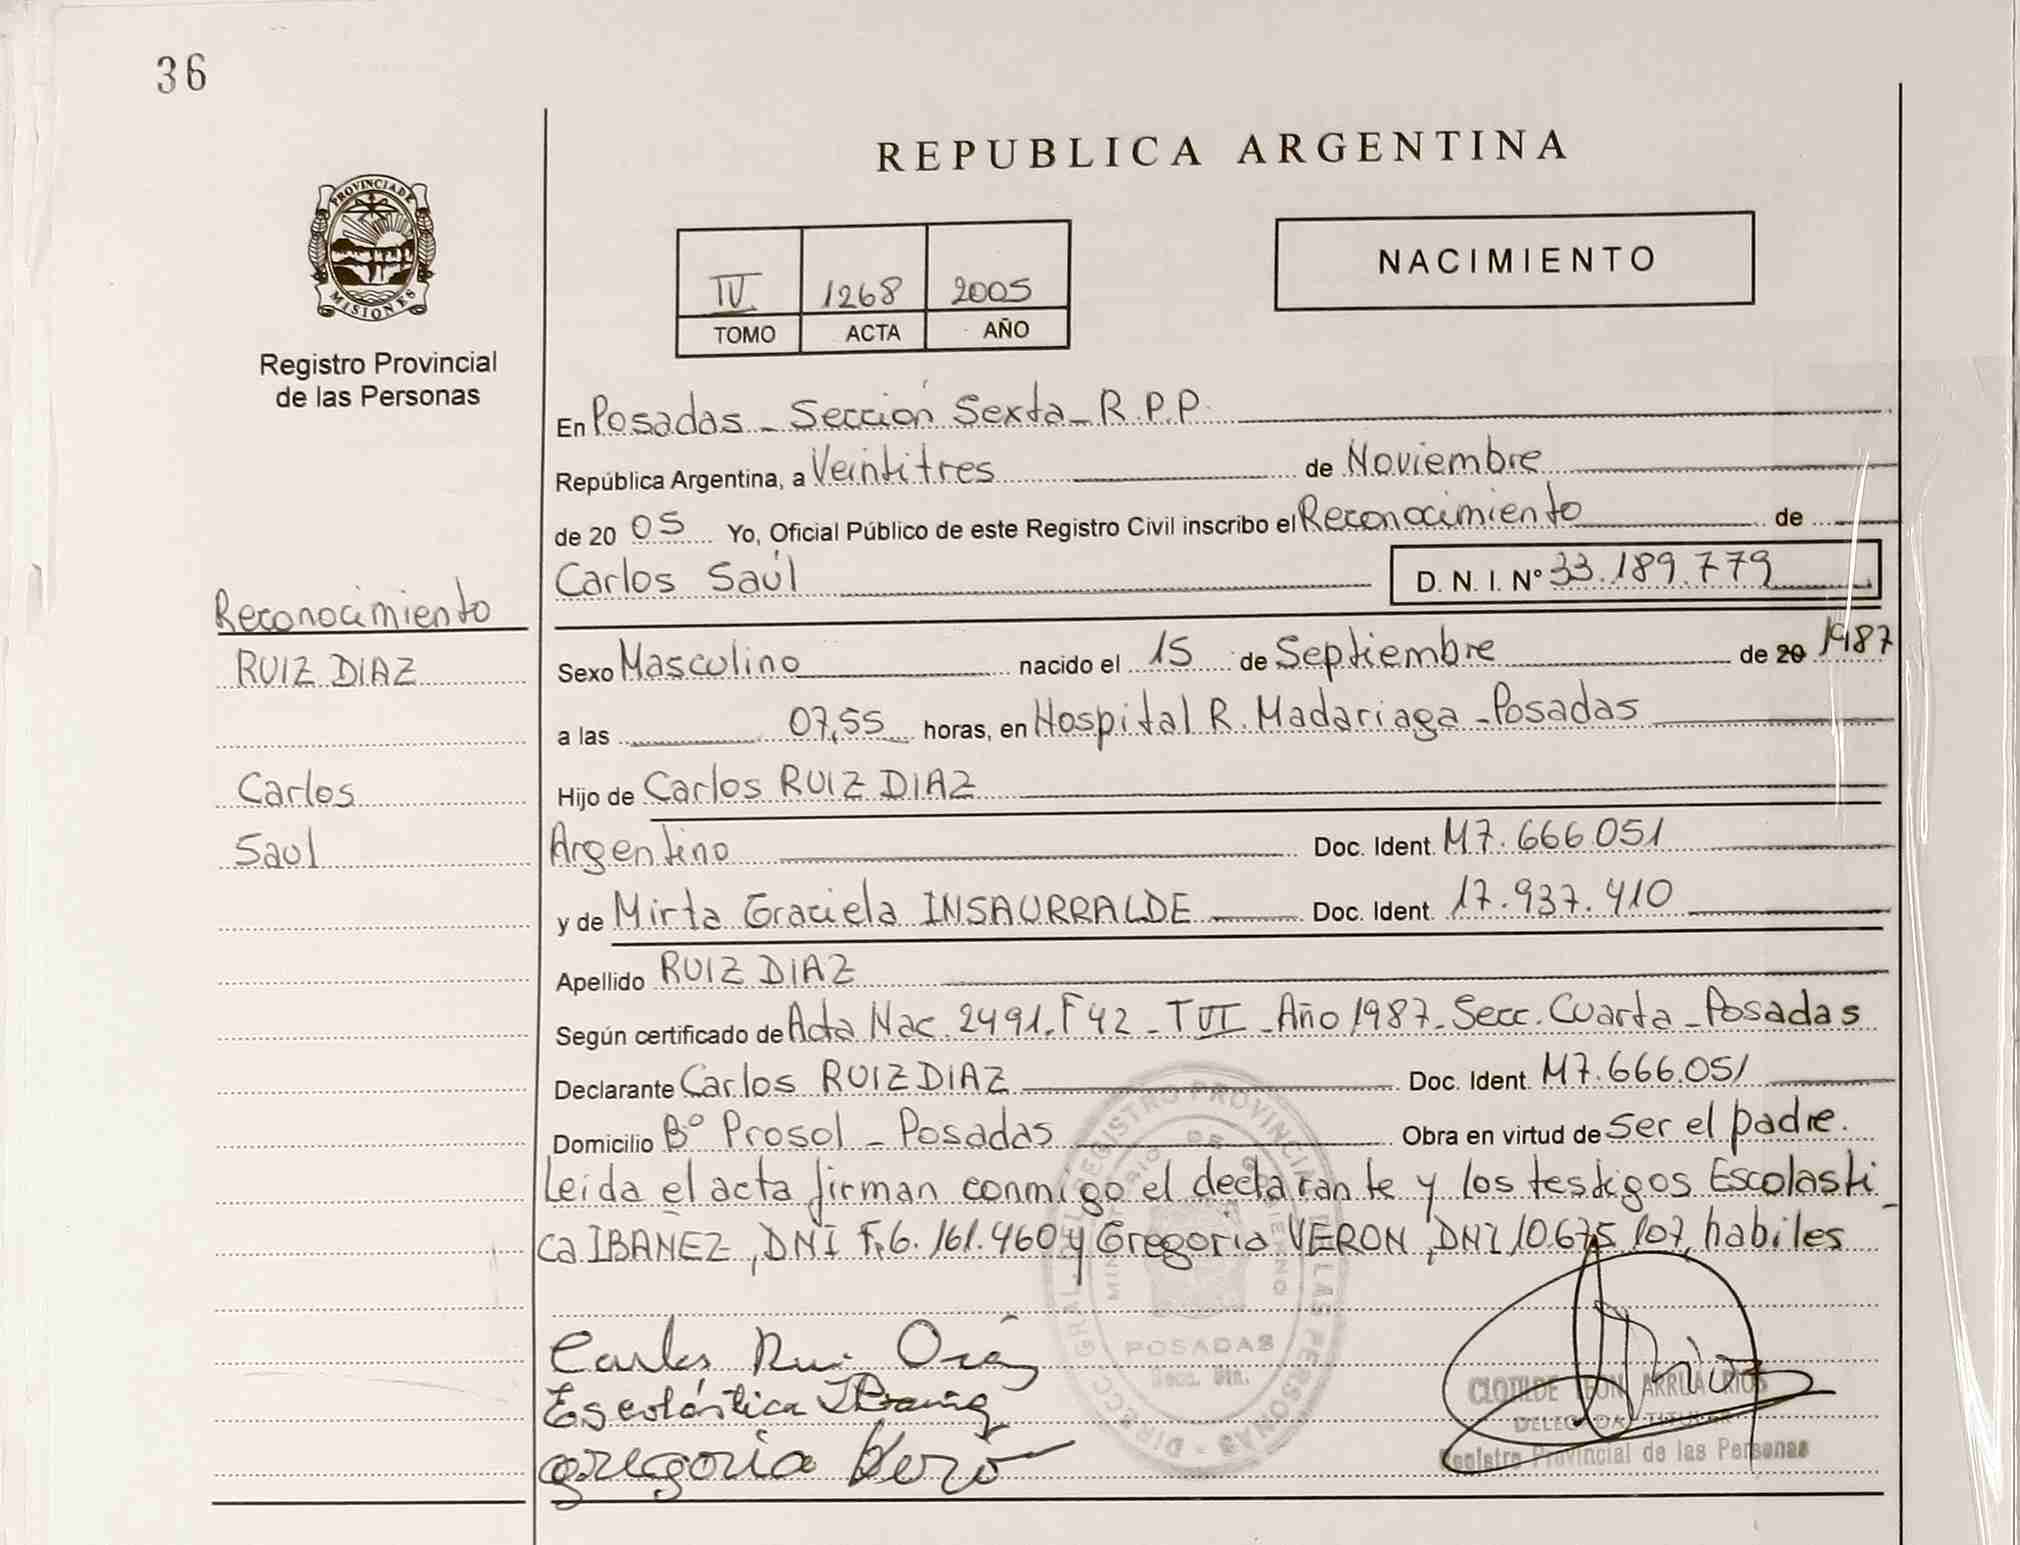 36
REPUBLICA ARGENTINA
PROVINCIA DE
MISIONES
Registro Provincial
de las Personas
NACIMIENTO
IV 1268 2005
TOMO ACTA AÑO
En Posadas - Sección Sexta - R.P.P.
República Argentina, a Veintitres de Noviembre
de 20 05 Yo, Oficial Público de este Registro Civil inscribo el Reconocimiento de
Carlos Saúl D. N. I. Nº 33.189.779
Reconocimiento
RUIZ DIAZ
Carlos
Saul
Sexo Masculino nacido el 15 de Septiembre de 20 1987
a las 07,55 horas, en Hospital R. Madariaga - Posadas
Hijo de Carlos RUIZ DIAZ
Argentino Doc. Ident. M7.666.051
y de Mirta Graciela INSAURRALDE Doc. Ident. 17.937.410
Apellido RUIZ DIAZ
Según certificado de Acta Nac. 2491. F 42 - T VI - Año 1987 - Secc. Cuarta - Posadas
Declarante Carlos RUIZ DIAZ Doc. Ident. M7.666.051
Domicilio Bº Prosol - Posadas Obra en virtud de ser el padre.
Leida el acta firman conmigo el declarante y los testigos Escolasti
ca IBAÑEZ, DNI F. 6.161.460 y Gregoria VERON, DNI 10.675.107, habiles
Carlos Rui Diaz
Escolástica Ibañez
gregoria Vero
DIRECC. GRAL. DEL REGISTRO PROVINCIAL DE LAS PERSONAS
MINISTERIO DE GOBIERNO
POSADAS
CLOTILDE LEON ARRUA RIOS
DELEGADA TITULAR
Registro Provincial de las Personas